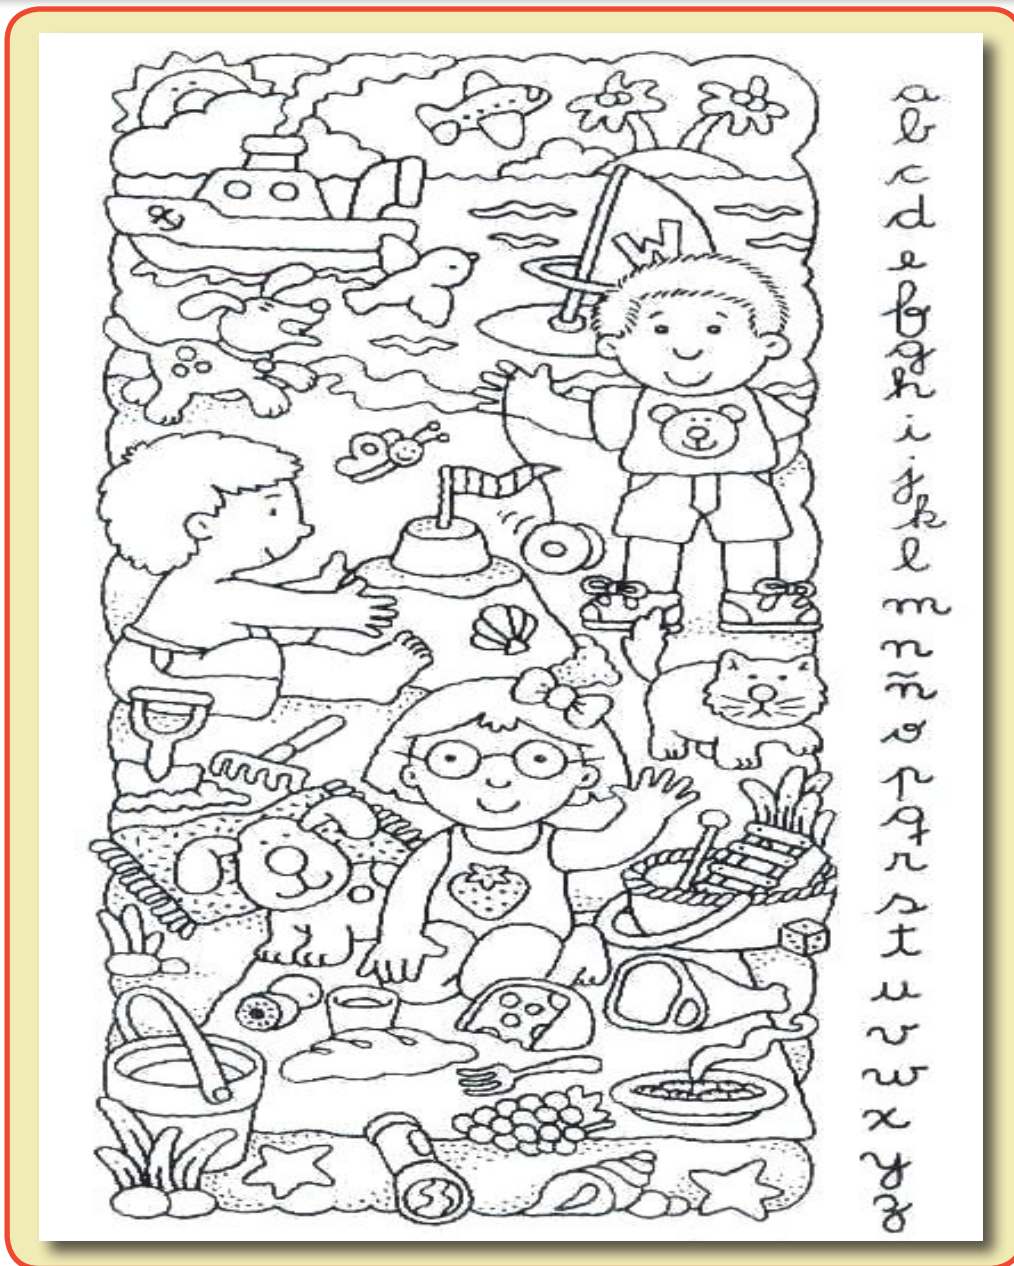 W
a
b
c
d
e
f
g
h
i
j
k
l
m
n
ñ
o
p
q
r
s
t
u
v
w
x
y
z